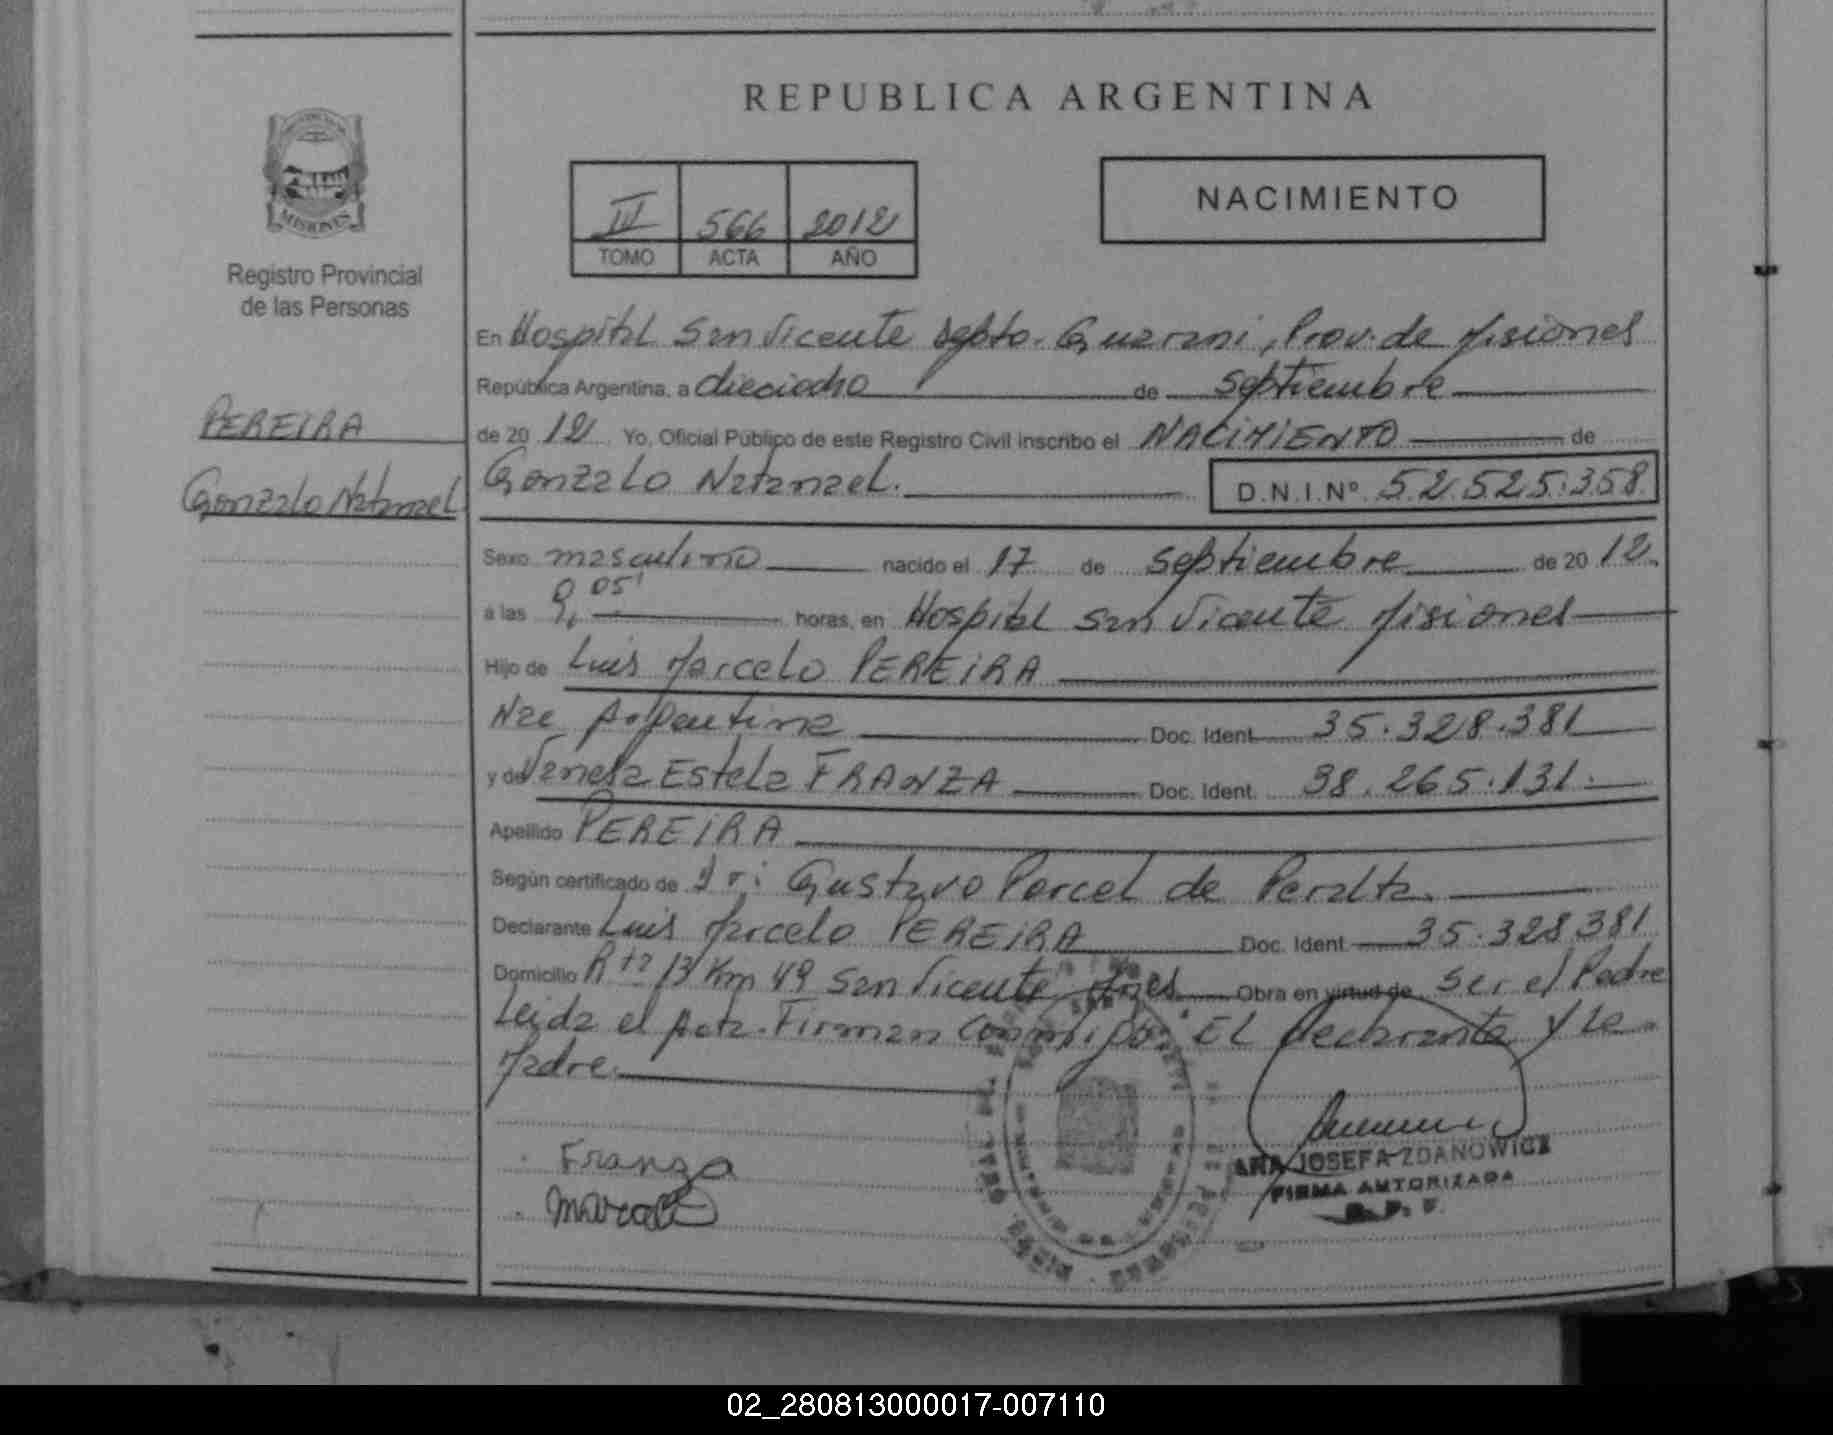 REPUBLICA ARGENTINA
MISIONES
Registro Provincial
de las Personas
III 566 2012
TOMO ACTA AÑO
NACIMIENTO
PEREIRA
Gonzalo Natanael
En Hospital San Vicente Depto. Guarani, Prov. de Misiones
República Argentina, a dieciocho de septiembre
de 20 12 Yo, Oficial Público de este Registro Civil inscribo el NACIMIENTO de
Gonzalo Natanael. D.N.I.Nº 52.525.358
Sexo masculino nacido el 17 de septiembre de 20 12.
a las 9,05' horas, en Hospital San Vicente Misiones
Hijo de Luis Marcelo PEREIRA
Nac Argentina Doc. Ident. 35.328.381
y de Vanesa Estela FRANZA Doc. Ident. 38.265.131.
Apellido PEREIRA
Según certificado de Dr: Gustavo Porcel de Peralta.
Declarante Luis Marcelo PEREIRA Doc. Ident. 35.328.381
Domicilio Rta 13 Km 49 San Vicente Mnes Obra en virtud de ser el Padre
Leida el Acta. Firman conmigo: El declarante y la
Madre.
Franza
Marcelo
ANA JOSEFA ZDANOWICZ
FIRMA AUTORIZADA
R. P. P.
02_280813000017-007110